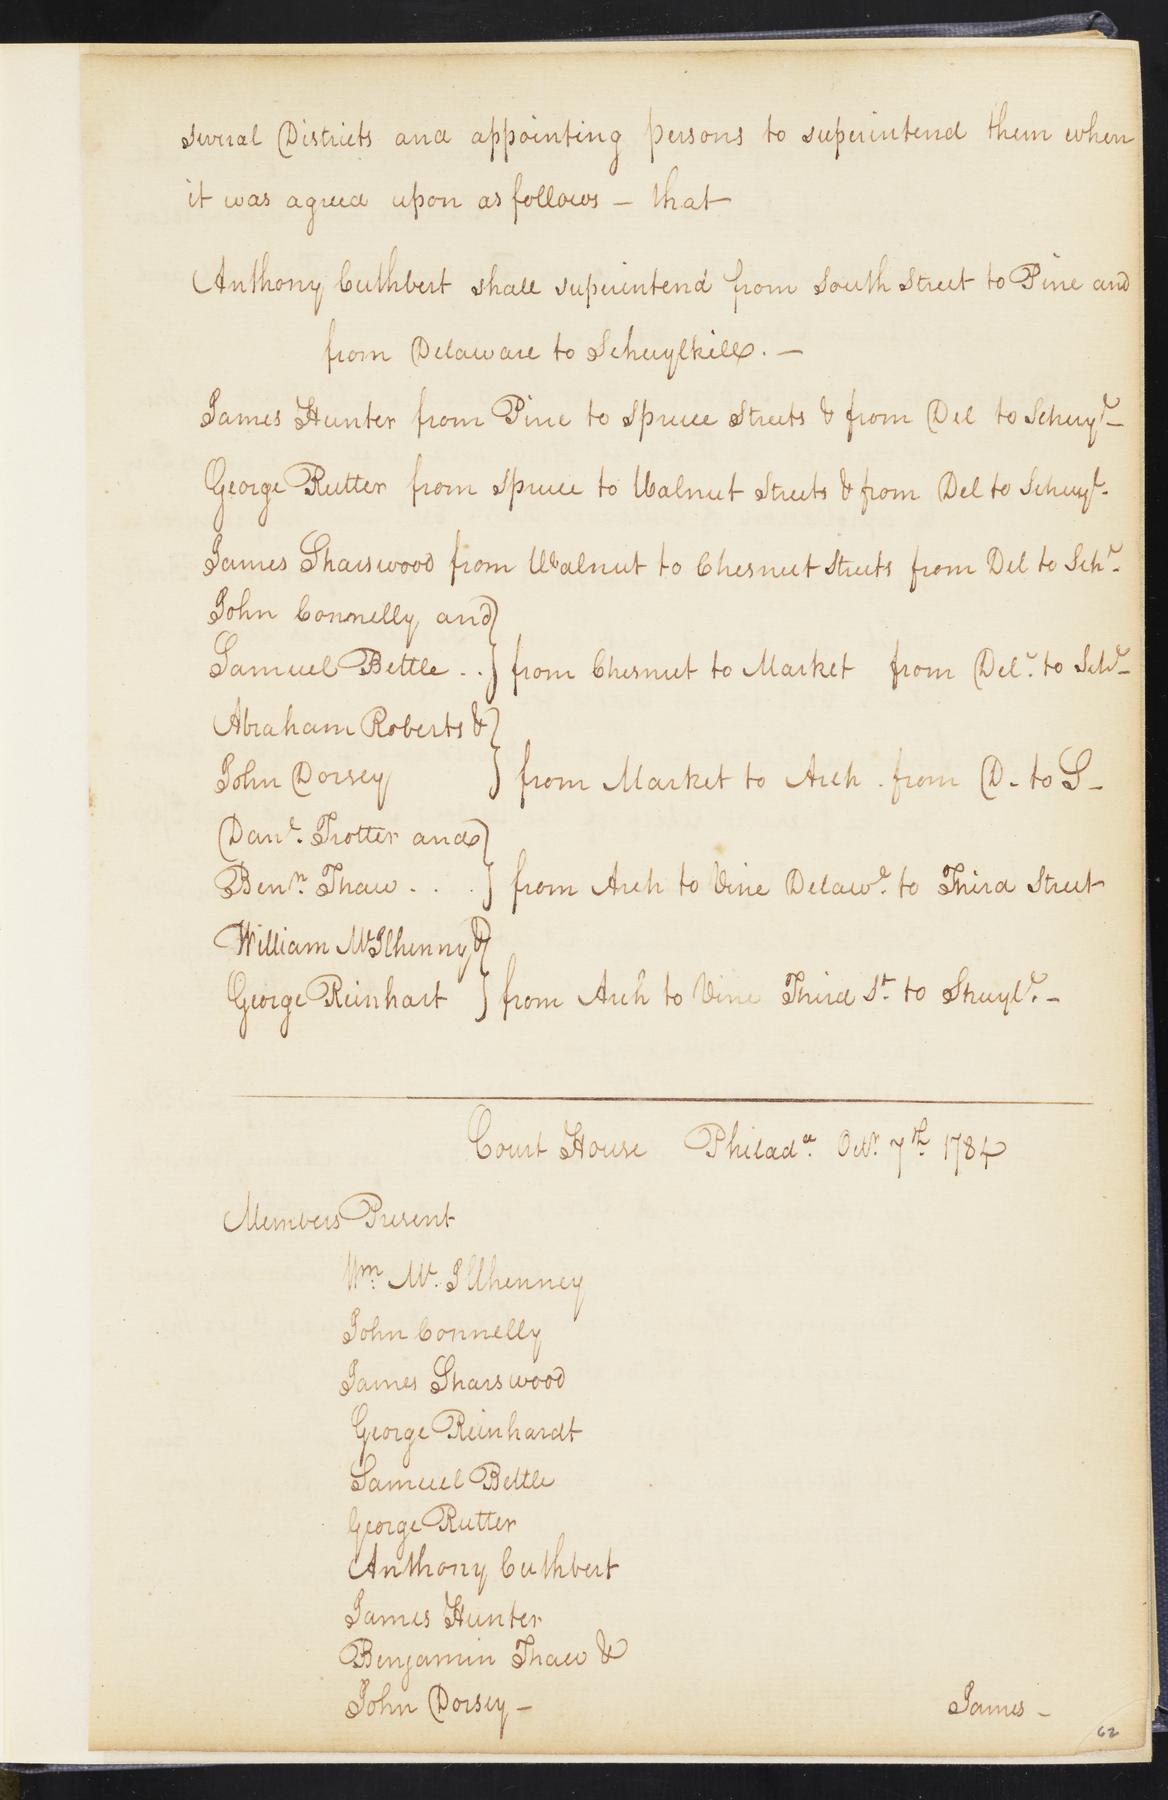 several Districts and appointing persons to superintend them when
it was agreed upon as follows – that
Anthony Cuthbert shall superintend from South Street to Pine and
from Delaware to Schuylkill. –
James Hunter from Pine to Spruce Streets & from Del to Schuyl –
George Rutter from Spruce to Walnut Streets & from Del to Schuyl.
James Sharswood from Walnut to Chesnut Streets from Del to Schl.
John Connelly and }
Samuel Bettle . . } from Chesnut to Market from Del. to Schl –
Abraham Roberts & }
John Dorsey } from Market to Arch . from D. to S –
Danl. Trotter and }
Benn. Thaw . . . } from Arch to Vine Delawe. to Third Street
William McIlhenny & }
George Reinhart } from Arch to Vine Third St. to Shuyle. –
Court House Philada. Octr. 7th 1784
Members Present
Wm. Mc. Illhenney
John Connelly
James Sharswood
George Reinhardt
Samuel Bettle
George Rutter
Anthony Cuthbert
James Hunter
Benjamin Thaw &
John Dorsey –
James –
62